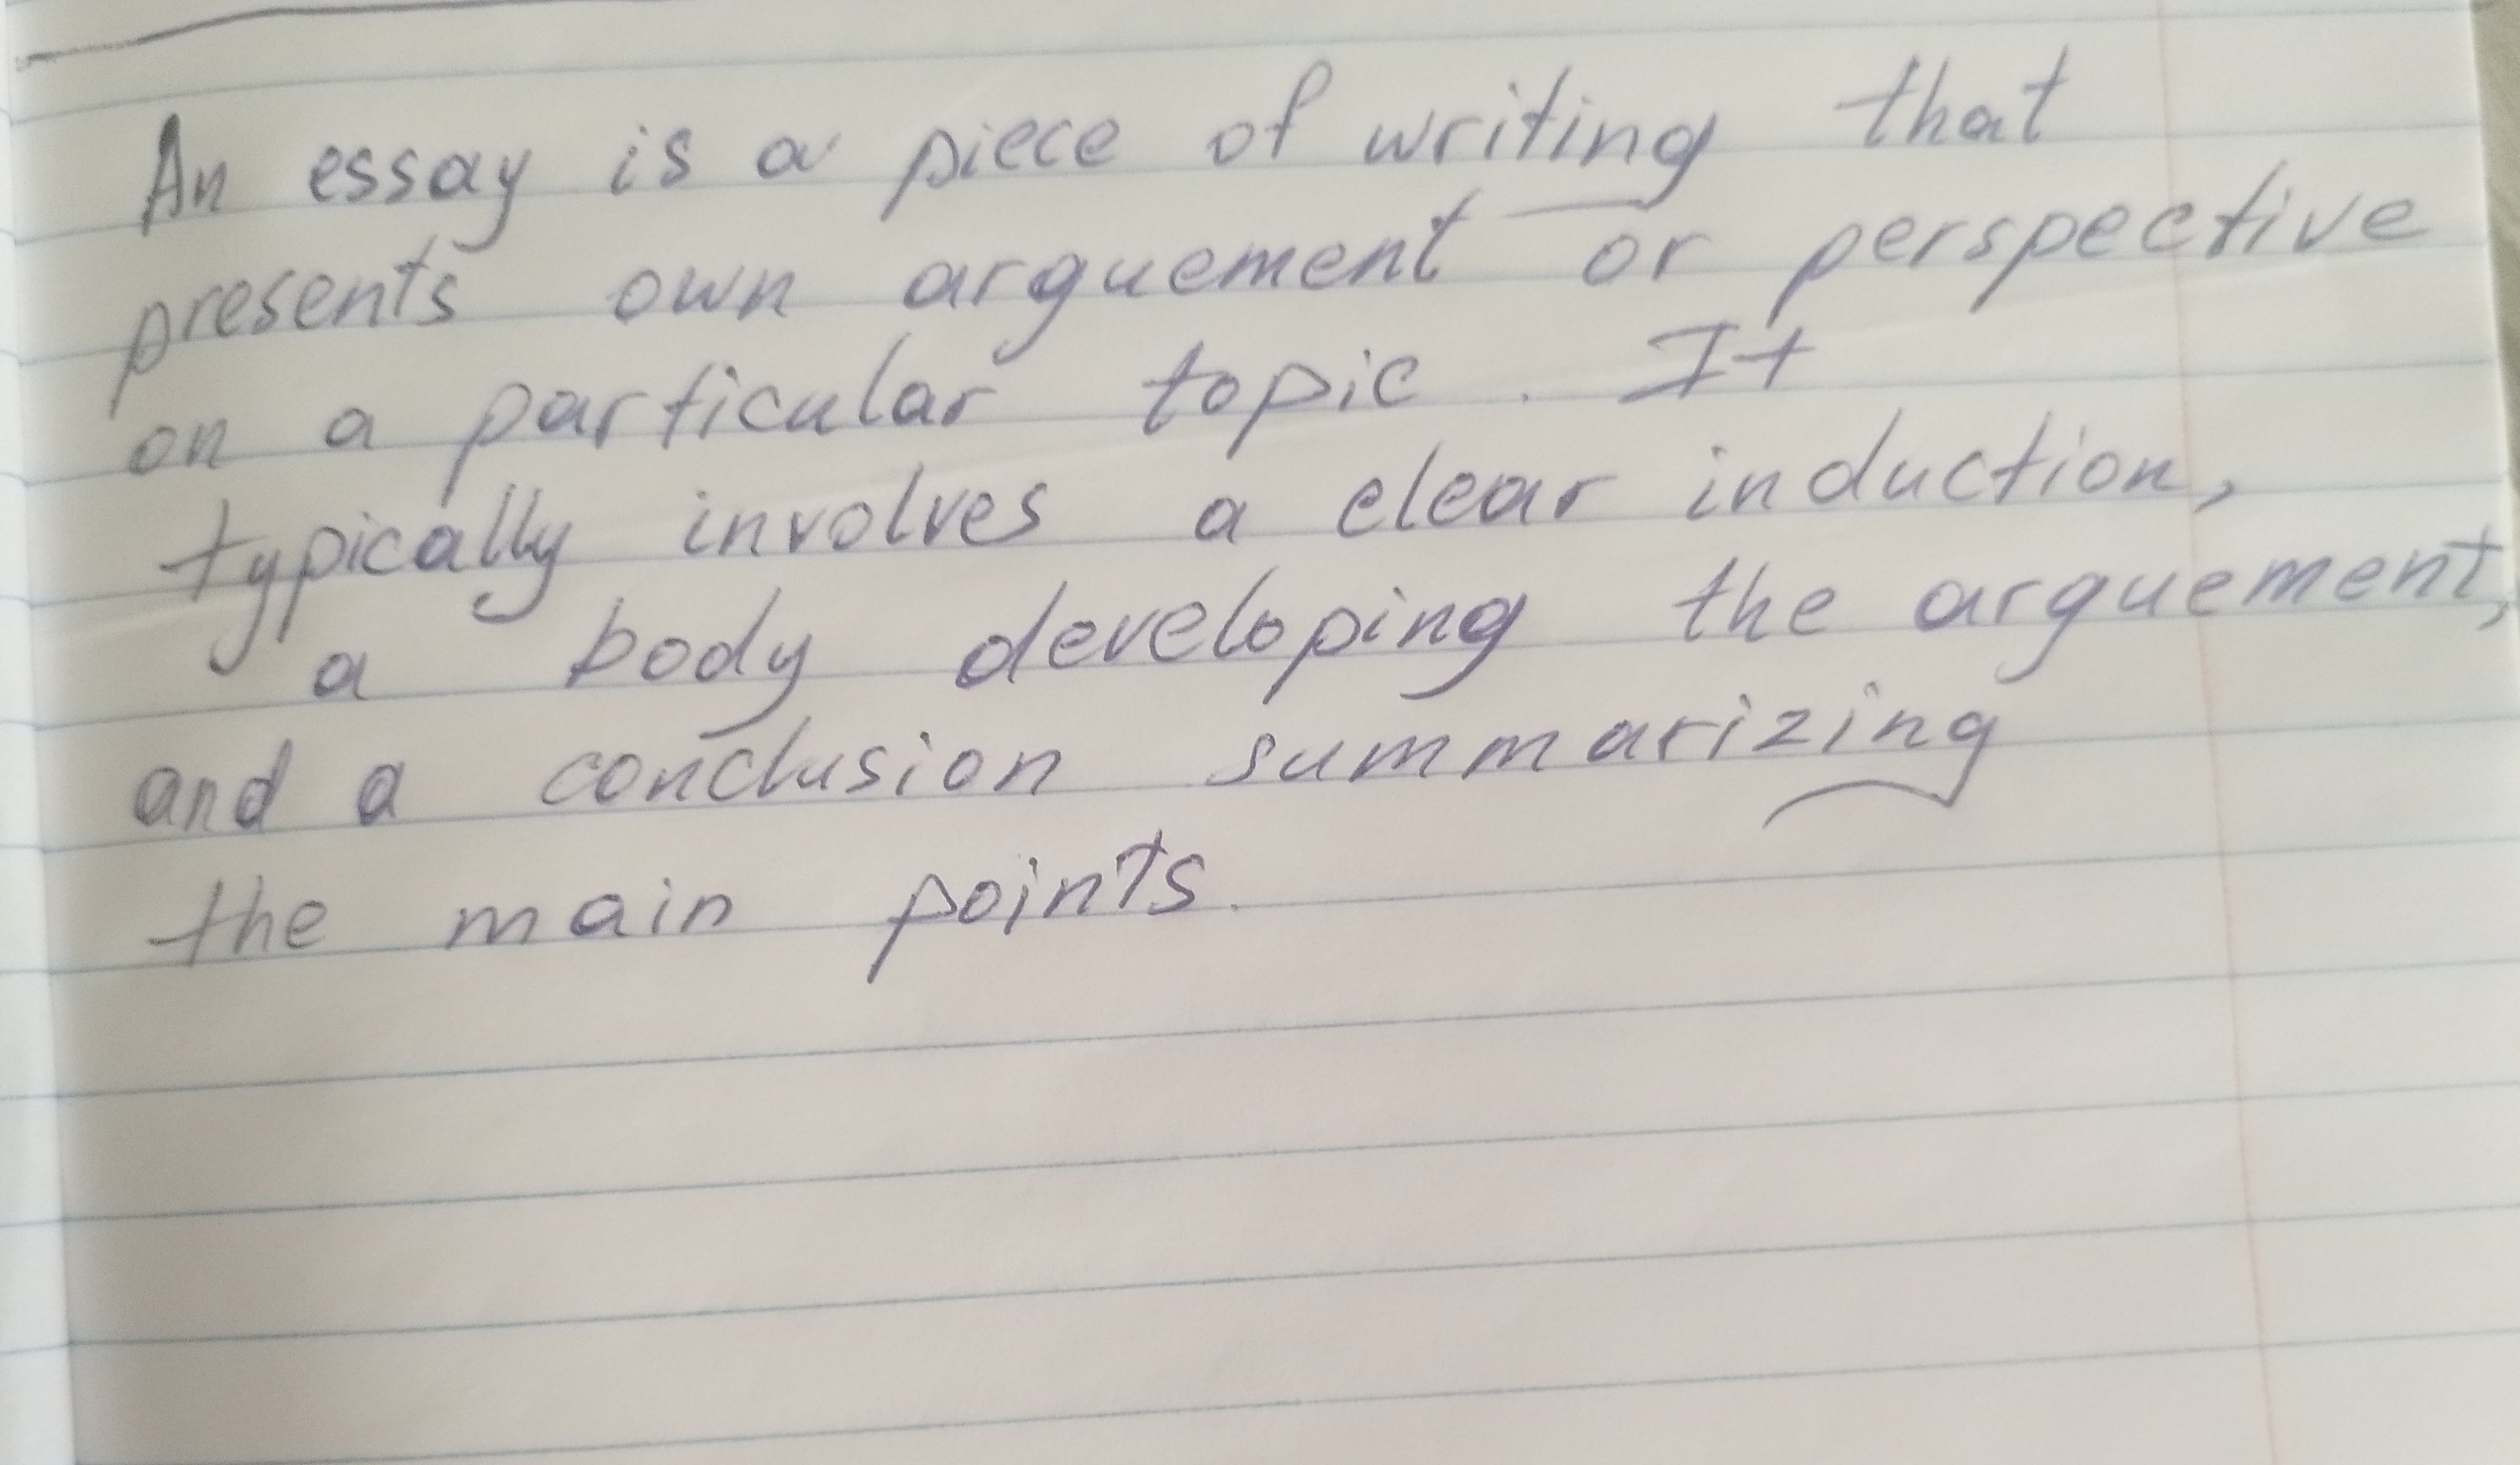 An essay is a piece of writing that
presents own arguement or perspective
on a particular topic. It
typically involves a clear induction,
a body developing the arguement,
and a conclusion summarizing
the main points.